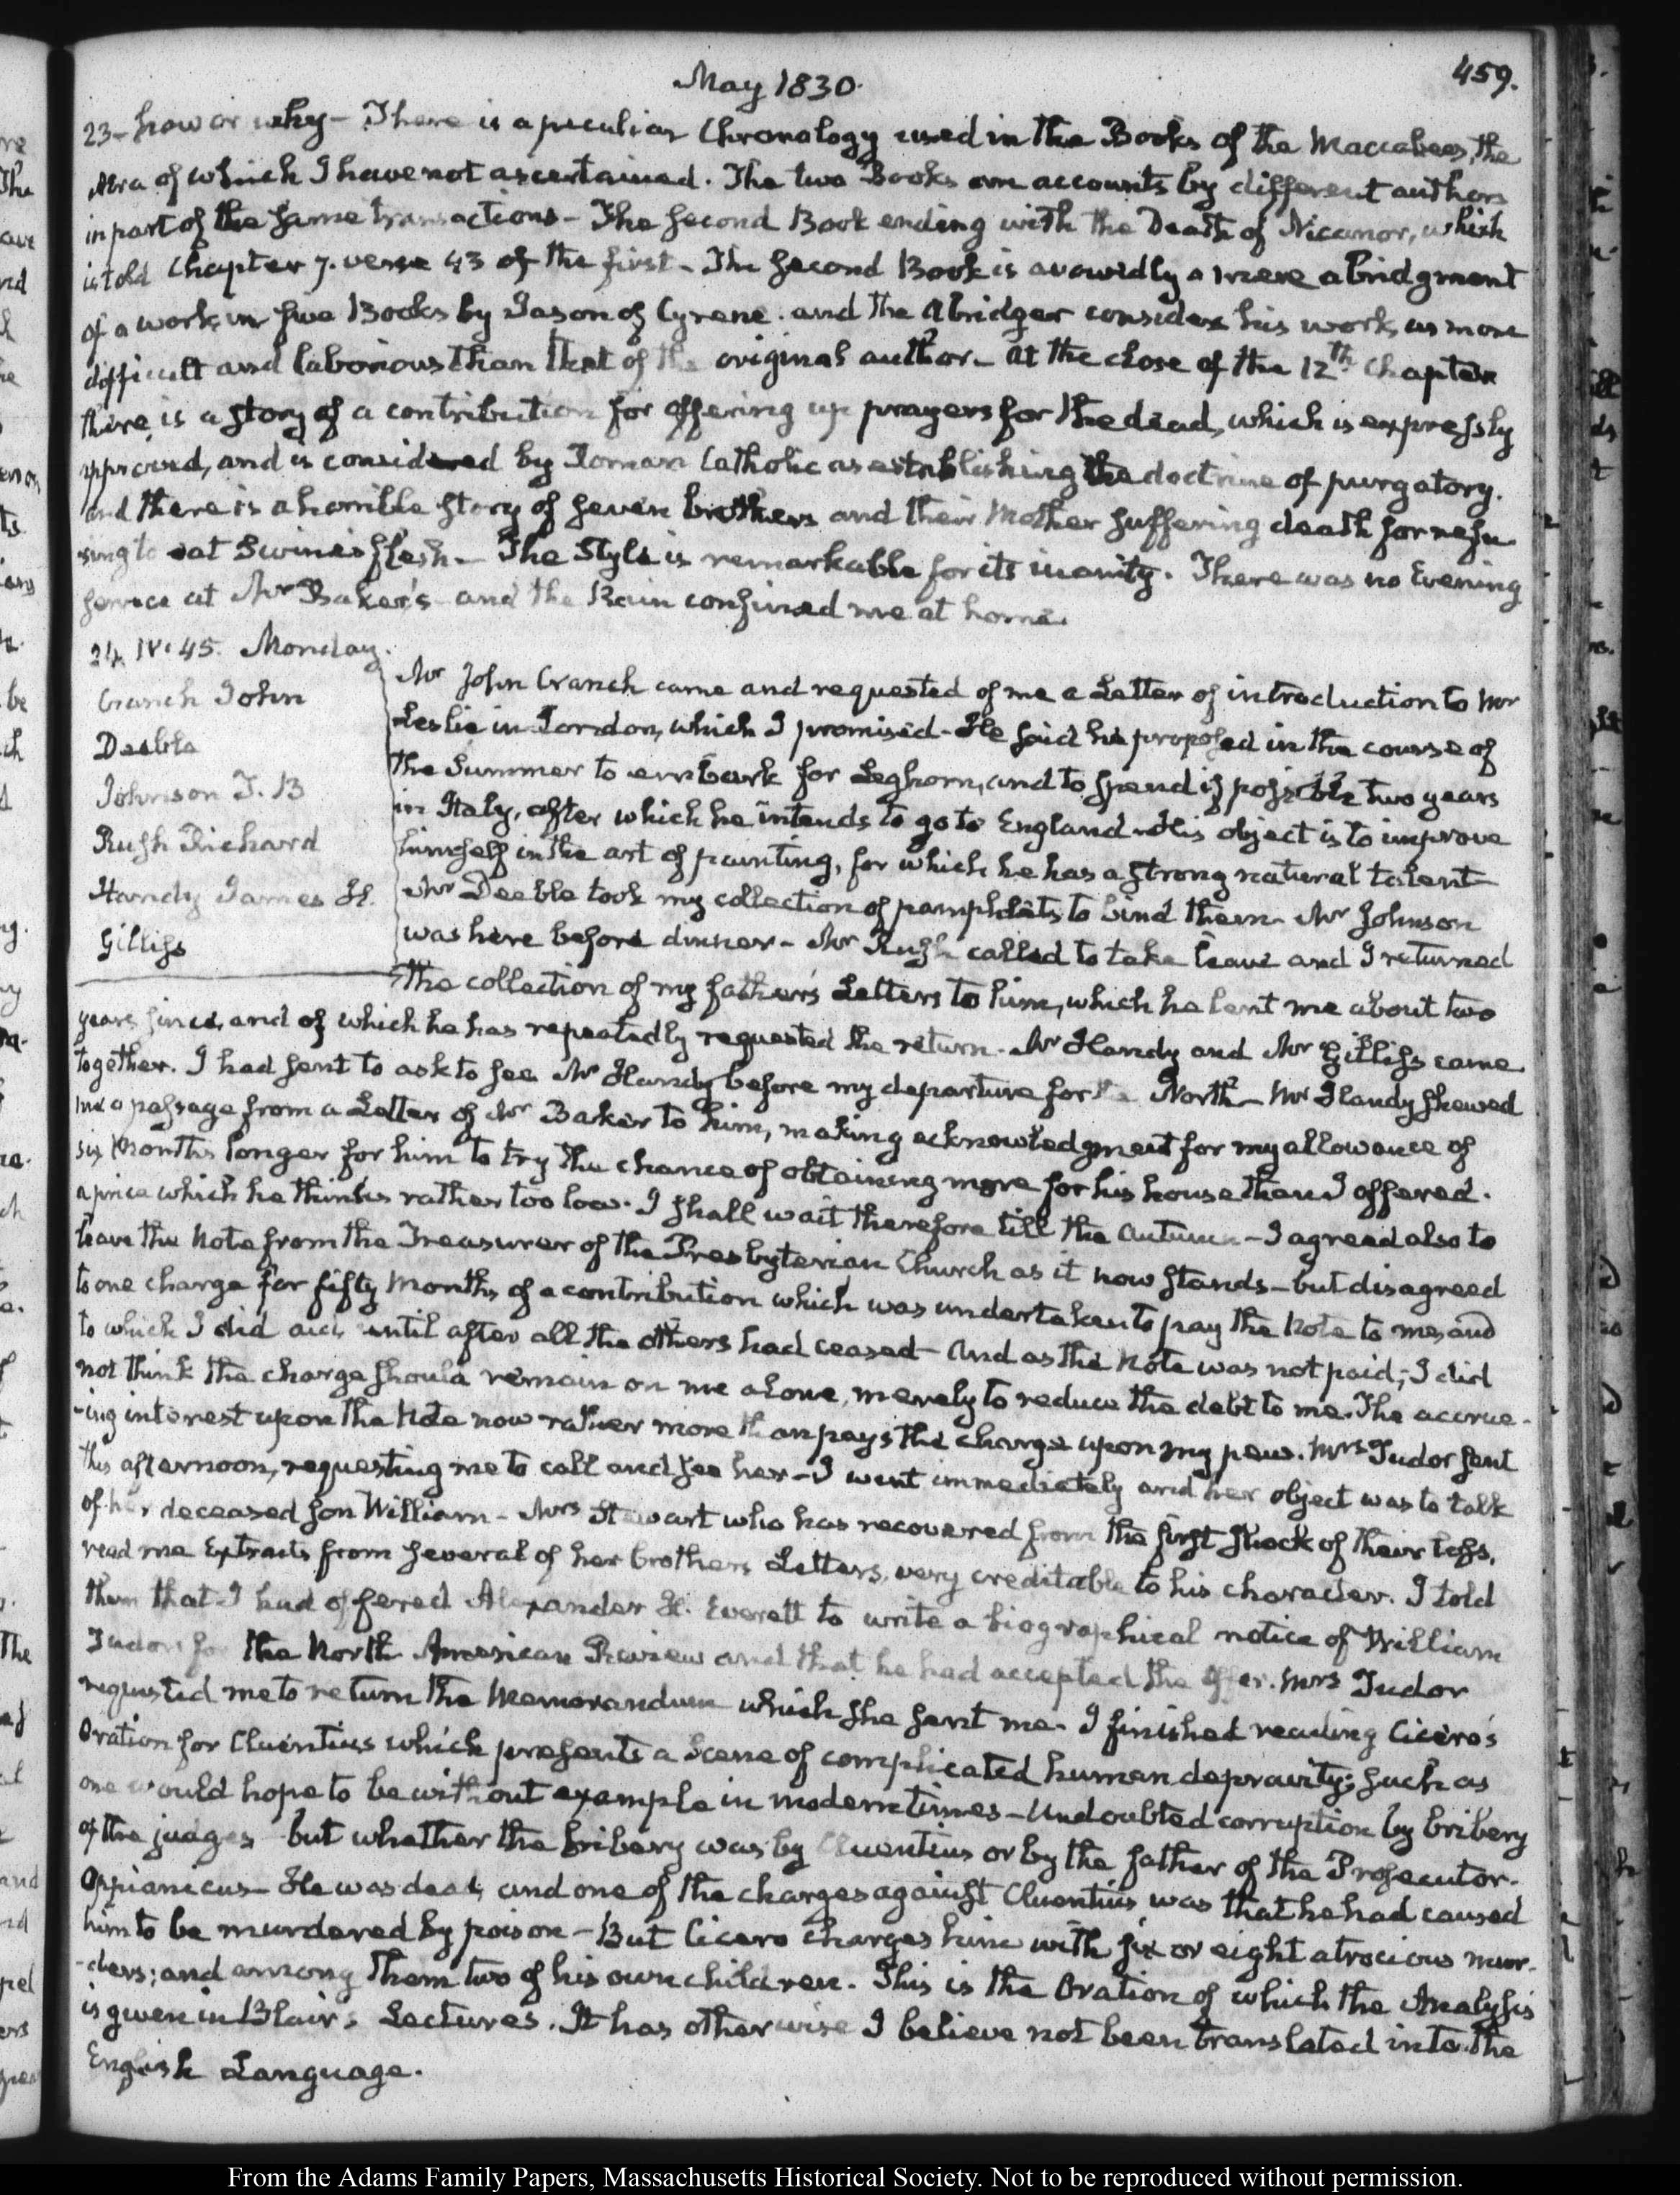 May 1830.
459.
23- how or why - There is a peculiar Chronology used in the Books of the Maccabees, the
Aera of which I have not ascertained. The two Books are accounts by different authors
in part of the same transactions - The second Book ending with the Death of Nicanor, which
is told Chapter 7. verse 43 of the first - The second Book is avowedly a mere abridgment
of a work in five Books by Jason of Cyrene. and the abridger considers his work as more
difficult and laborious than that of the original author - At the close of the 12th Chapter
there is a story of a contribution for offering up prayers for the dead, which is expressly
approved, and is considered by Roman Catholic as establishing the doctrine of purgatory.
and there is a horrible story of seven brothers and their Mother suffering death for refu
sing to eat Swine's flesh - The Style is remarkable for its inanity. There was no Evening
service at Mr Baker's - and the Rain confined me at home.
24. IV:45. Monday.
Cranch John
Deeble
Johnson J. B
Rush Richard
Handy James H.
Gilliss
Mr John Cranch came and requested of me a Letter of introduction to Mr
Leslie in London, which I promised - He said he proposed in the course of
the Summer to embark for Leghorn, and to spend if possible two years
in Italy, after which he intends to go to England - His object is to improve
himself in the art of painting, for which he has a strong natural talent
Mr Deeble took my collection of pamphlets to bind them - Mr Johnson
was here before dinner - Mr Rush called to take leave and I returned
the collection of my father's Letters to him, which he lent me about two
years since, and of which he has repeatedly requested the return - Mr Handy and Mr Gilliss came
together. I had sent to ask to see Mr Handy before my departure for the North - Mr Handy shewed
me a passage from a Letter of Mr Baker to him, making acknowledgment for my allowance of
six Months longer for him to try the chance of obtaining more for his house than I offered.
a price which he thinks rather too low. I shall wait therefore till the Autumn - I agreed also to
leave the Note from the Treasurer of the Presbyterian Church as it now stands - but disagreed
to one charge for fifty Months of a contribution which was undertaken to pay the Note to me, and
to which I did aid, until after all the others had ceased - And as the Note was not paid, I did
not think the charge should remain on me alone, merely to reduce the debt to me. The accrue-
-ing interest upon the Note now rather more than pays the charge upon my pew. Mrs Tudor sent
this afternoon, requesting me to call and see her - I went immediately and her object was to talk
of her deceased son William - Mrs Stewart who has recovered from the first shock of their loss,
read me Extracts from several of her brothers Letters, very creditable to his character. I told
them that I had offered Alexander H. Everett to write a biographical notice of William
Tudor for the North American Review and that he had accepted the offer. Mrs Tudor
requested me to return the Memorandum which she sent me - I finished reading Cicero's
Oration for Cluentius which presents a Scene of complicated human depravity; such as
one would hope to be without example in modern times - Undoubted corruption by bribery
of the judges - but whether the bribery was by Cluentius or by the father of the Prosecutor -
Oppianicus - He was dead, and one of the charges against Cluentius was that he had caused
him to be murdered by poison - But Cicero charges him with six or eight atrocious mur-
-ders; and among them two of his own children. This is the Oration of which the Analysis
is given in Blair's Lectures. It has otherwise I believe not been translated into the
English Language.
From the Adams Family Papers, Massachusetts Historical Society. Not to be reproduced without permission.